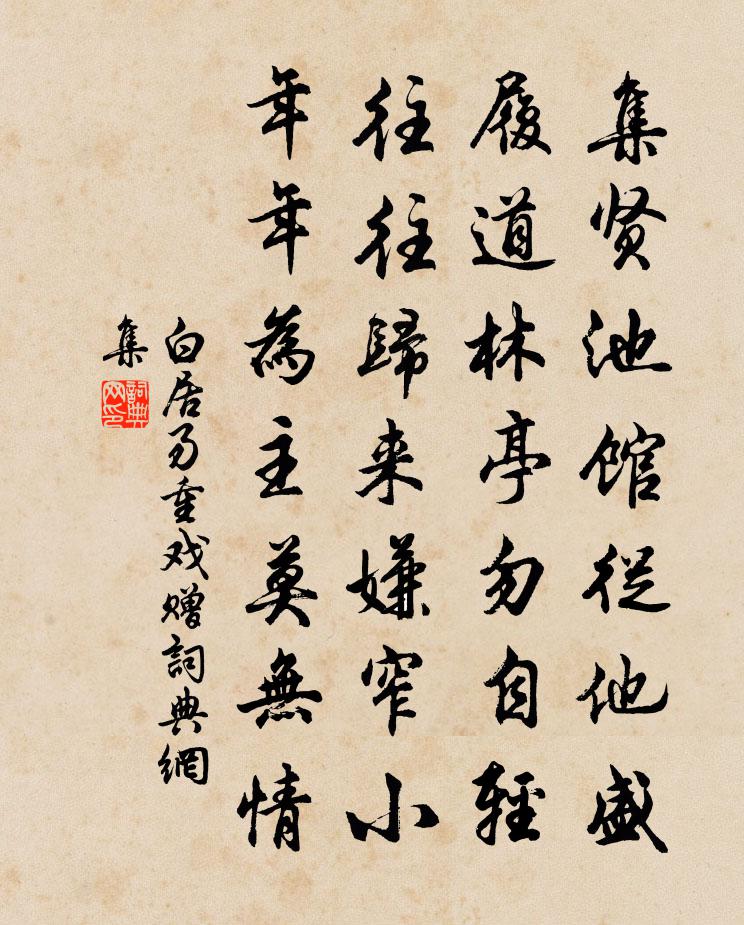 集贤池馆從他盛
履道林亭勿自輕
往往歸来嫌窄小
年年為主莫無情
白居易重戏赠詞典網
集
詞典
网印